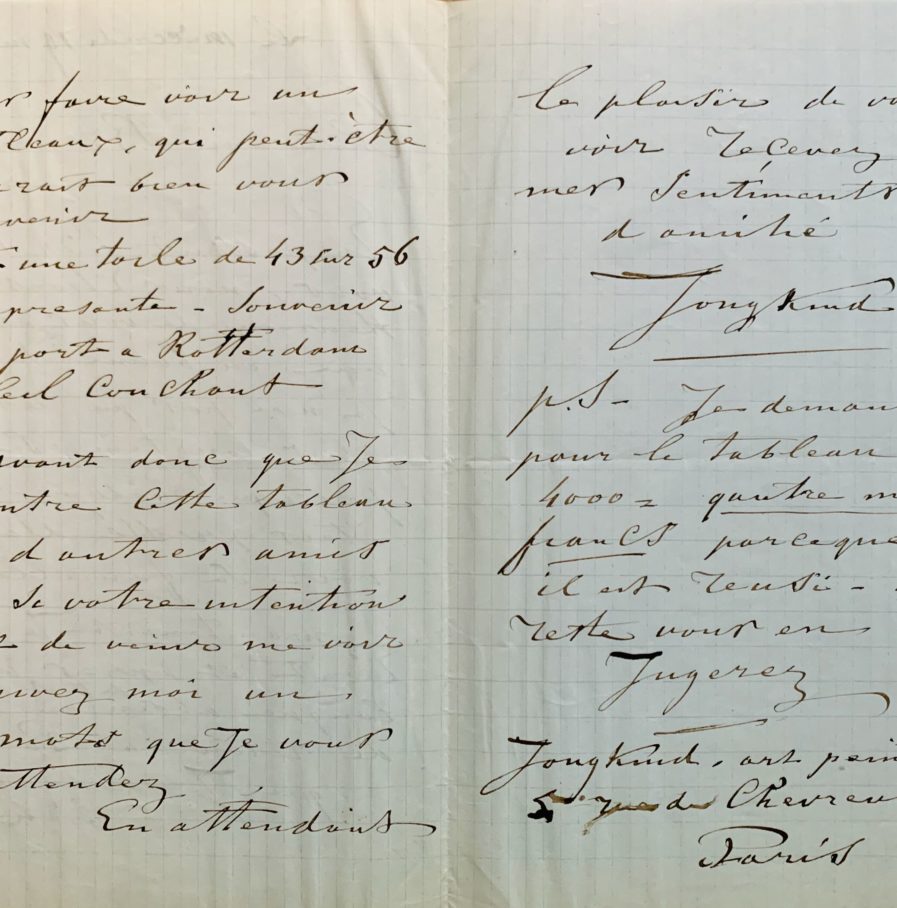 faire voir un
leaux, qui peut être
rait bien vous
venir
une toile de 43 sur 56
présente - Souvenir
port a Rotterdam
leil Couchant
vant donc que Je
ntre Cette tableau
d autres amis
Si votre intention
de venir me voir
uvez moi un
mots que Je vous
ttendez
En attendant
le plaisir de vo
voir Reçevez
mes Sentiments
d amitié
Jongkind
p.S - Je deman
pour le tableau
4000 = quatre m
francs parceque
il est reusi -
reste vous en
Jugerez
Jongkind, art pein
5 rue de Chevreu
Paris